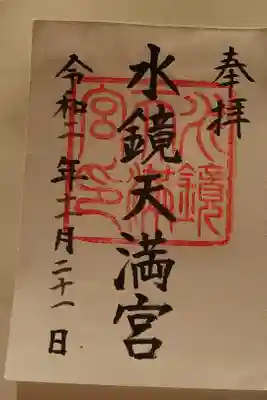 奉拝
水鏡天満宮
令和二年十一月二十一日